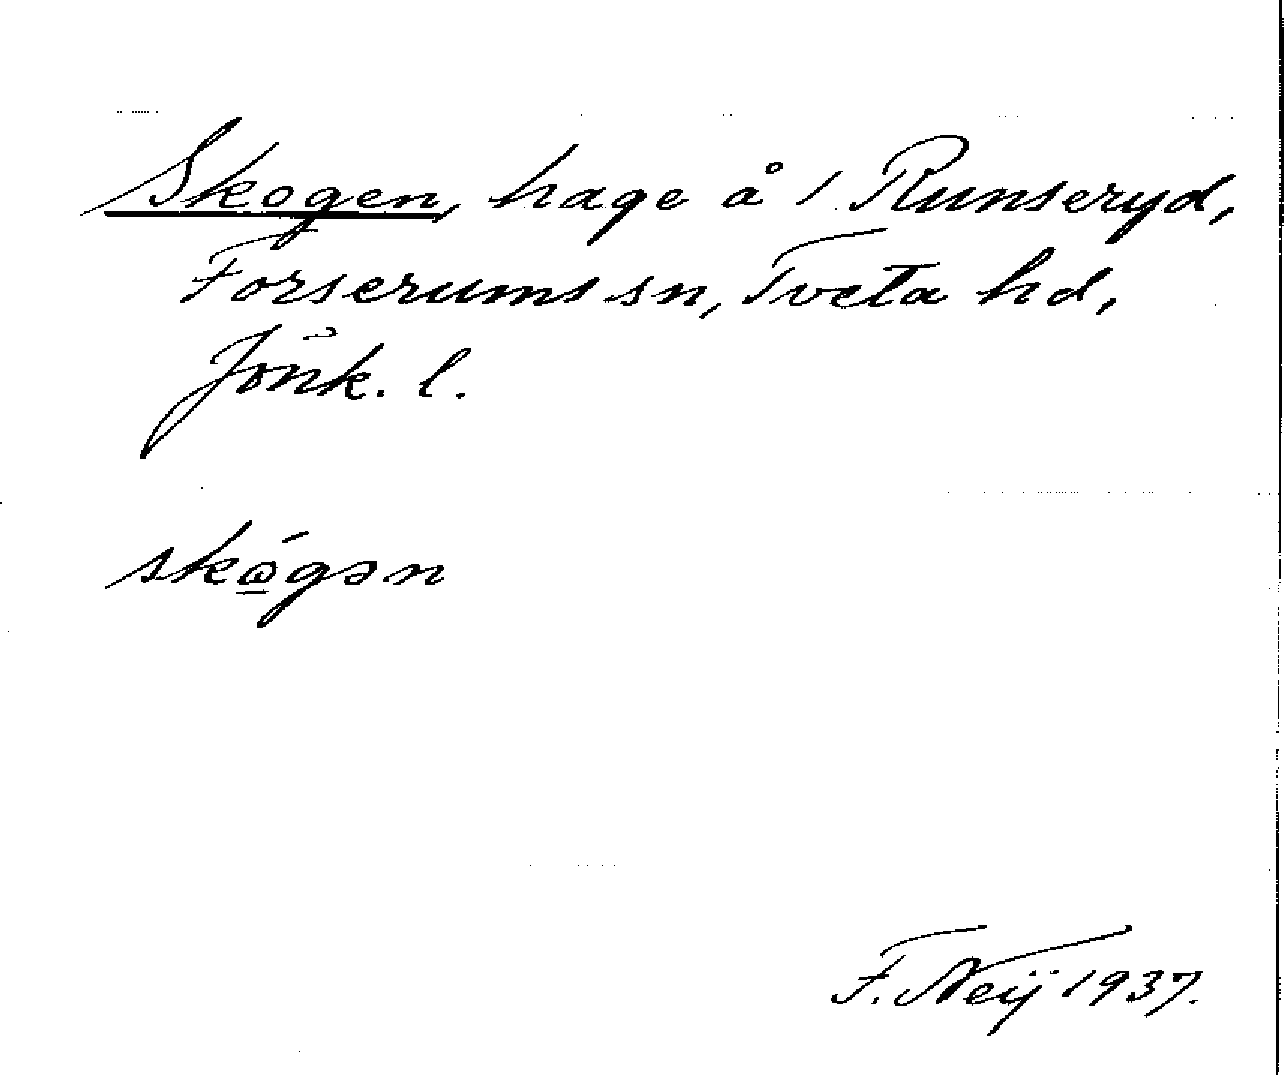 Skogen, hage å 1 Runseryd,
Forserums sn, Tveta hd,
Jönk. l.
skώ̲gən
F. Neij 1937.